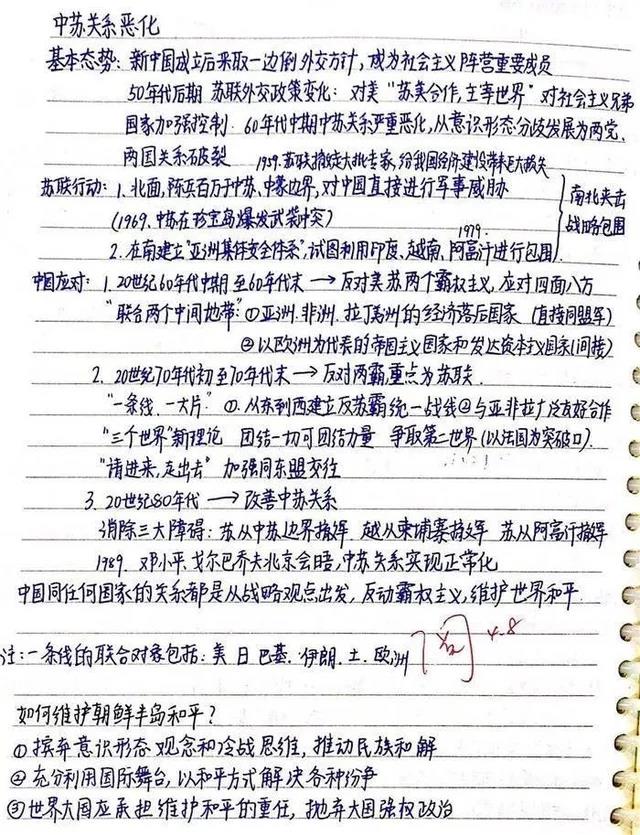 中苏关系恶化
基本态势：新中国成立后采取一边倒外交方针，成为社会主义阵营重要成员
50年代后期 苏联外交政策变化：对美"苏美合作，主宰世界"对社会主义兄弟
国家加强控制．60年代中期中苏关系严重恶化，从意识形态分歧发展为两党、
两国关系破裂 1959.苏联撤走大批专家，给我国经济建设带来巨大损失
苏联行动：1.北面，陈兵百万于中苏、中蒙边界，对中国直接进行军事威胁
(1969.中苏在珍宝岛爆发武装冲突)
南北夹击
战略包围
1979.
2.在南建立"亚洲集体安全体系"，试图利用印度、越南、阿富汗进行包围
中国应对：1.20世纪60年代中期至60年代末→反对美苏两个霸权主义，应对四面八方
"联合两个中间地带"：①亚洲.非洲.拉丁美洲的经济落后国家（直接同盟军）
②以欧洲为代表的帝国主义国家和发达资本主义国家(间接)
2.20世纪70年代初至70年代末→反对两霸，重点为苏联．
"一条线．一大片"①.从东到西建立反苏霸统一战线②与亚非拉广泛友好合作
"三个世界"新理论 团结一切可团结力量 争取第二世界(以法国为突破口)．
"请进来，走出去"加强同东盟交往
3.20世纪80年代→改善中苏关系
消除三大障碍：苏从中苏边界撤军 越从柬埔寨撤军 苏从阿富汗撤军
1989．邓小平、戈尔巴乔夫北京会晤，中苏关系实现正常化
中国同任何国家的关系都是从战略观点出发，反动霸权主义，维护世界和平．
注：一条线的联合对象包括：美 日 巴基．伊朗．土．欧洲
4.8
如何维护朝鲜半岛和平？
①摈弃意识形态观念和冷战思维，推动民族和解
②充分利用国际舞台，以和平方式解决各种纷争
③世界大国应承担维护和平的重任，抛弃大国强权政治